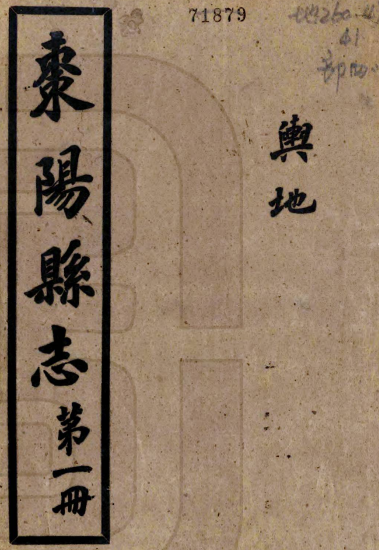 71879
棗陽縣志第一冊
輿地